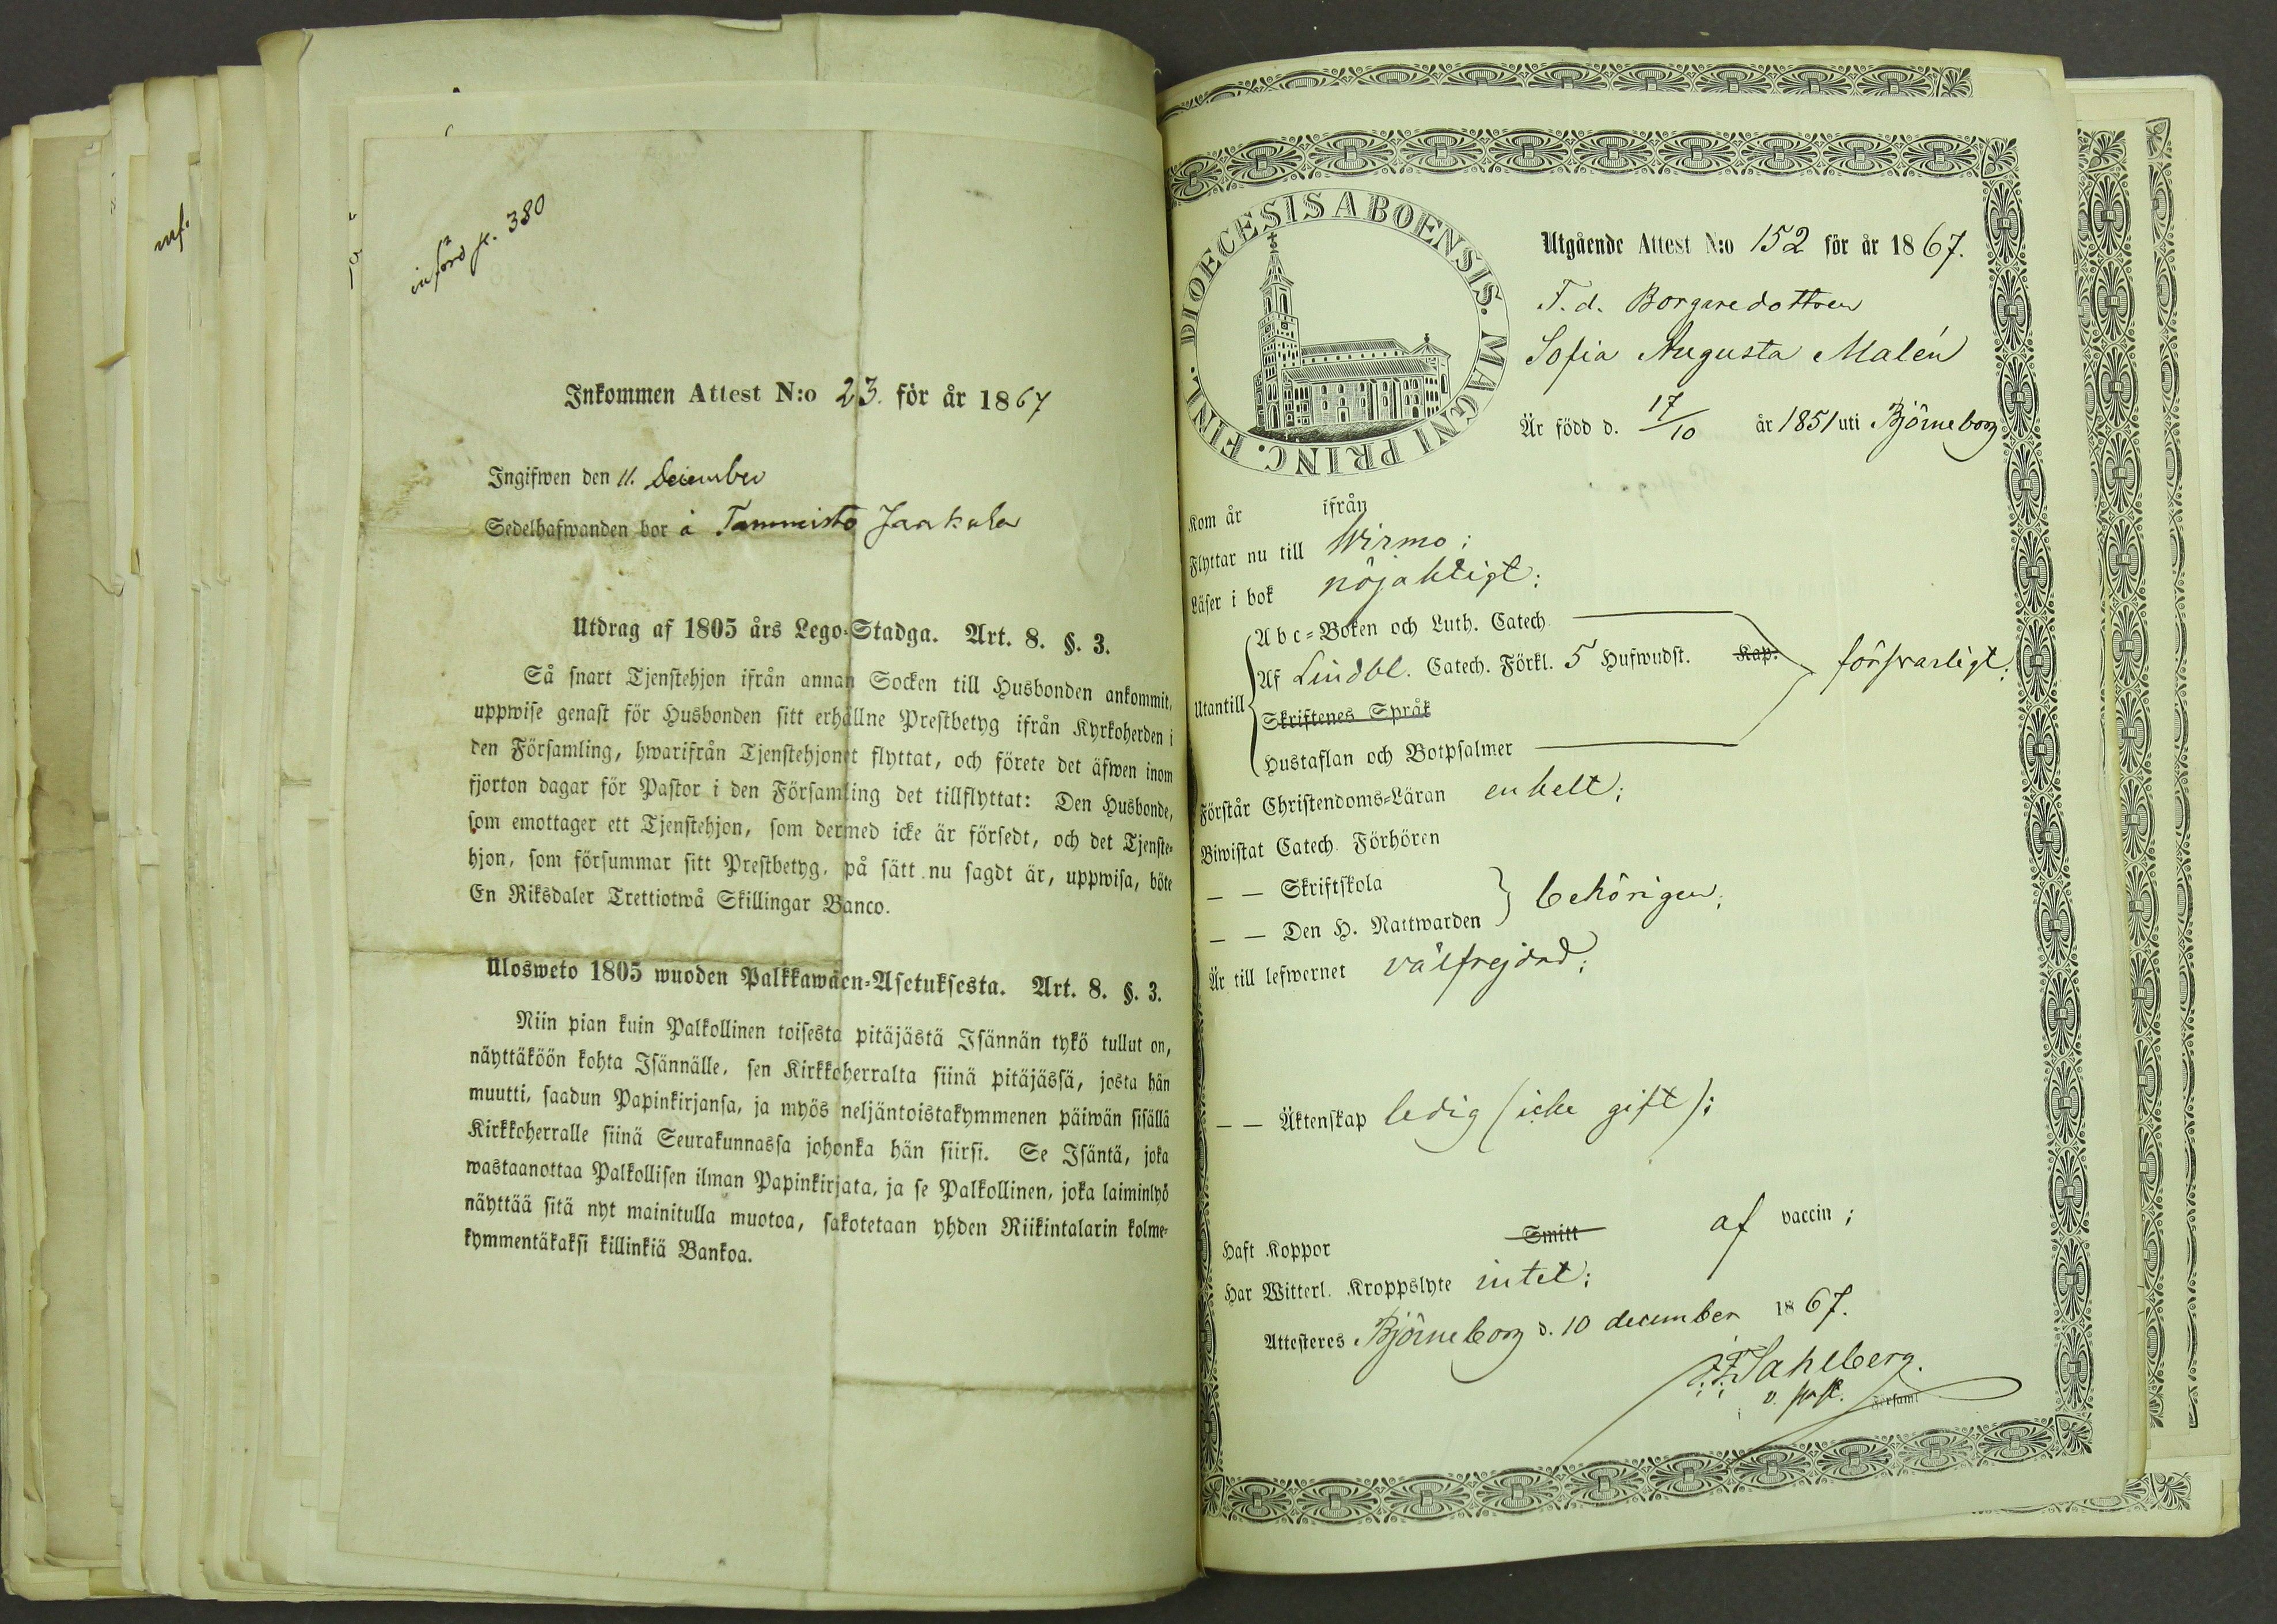 inf.
införd p. 380
Inkommen Attest N:o 23. för år 1867
Ingifwen den 11. December
Sedelhafwanden bor å Tammisto Jaakula
Utdrag af 1805 års Lego-Stadga. Art. 8. §. 3.
Så snart Tjenstehjon ifrån annan Socken till Husbonden ankommit,
uppwise genast för Husbonden sitt erhållne Prestbetyg ifrån Kyrkoherden i
den Församling, hwarifrån Tjenstehjonet flyttat, och förete det äfwen inom
fjorton dagar för Pastor i den Församling det tillflyttat: Den Husbonde,
som emottager ett Tjenstehjon, som dermed icke är försedt, och det Tjenste-
hjon, som försummar sitt Prestbetyg, på sätt nu sagdt är, uppwisa, böte
En Riksdaler Trettiotwå Skillingar Banco.
Ulosweto 1805 wuoden Palkkawäen-Asetuksesta. Art. 8. §. 3.
Niin pian kuin Palkollinen toisesta pitäjästä Isännän tykö tullut on,
näyttäköön kohta Isännälle, sen Kirkkoherralta siinä pitäjässä, josta hän
muutti, saadun Papinkirjansa, ja myös neljäntoistakymmenen päiwän sisällä
Kirkkoherralle siinä Seurakunnassa johonka hän siirsi. Se Isäntä, joka
wastaanottaa Palkollisen ilman Papinkirjata, ja se Palkollinen, joka laiminlyö
näyttää sitä nyt mainitulla muotoa, sakotetaan yhden Riikintalarin kolme-
kymmentäkaksi killinkiä Bankoa.
FINL. DIOECESIS ABOENSIS. MAGNI PRINC.
Utgående Attest N:o 152 för år 1867.
T. d. Borgaredottren
Sofia Augusta Malén
Är född d. 17/10 år 1851 uti Björneborg
Kom år ifrån
Flyttar nu till Wirmo;
Läser i bok nöjaktigt;
Utantill
Abc-Boken och Luth. Catech.
Af Lindbl. Catech. Förkl. 5 Hufwudst. Kap. försvarligt;
Skriftenes Språk
Hustaflan och Botpsalmer
Förstår Christendoms-Läran enkelt;
Biwistat Catech. Förhören
— — Skriftskola
— — Den H. Nattwarden behörigen;
Är till lefwernet välfrejdad;
— — Äktenskap ledig (icke gift);
Haft Koppor Smitt af vaccin;
Har Witterl. Kroppslyte intet;
Attesteres Björneborg d. 10 december 1867.
F. Sahlberg.
v. past. Församl